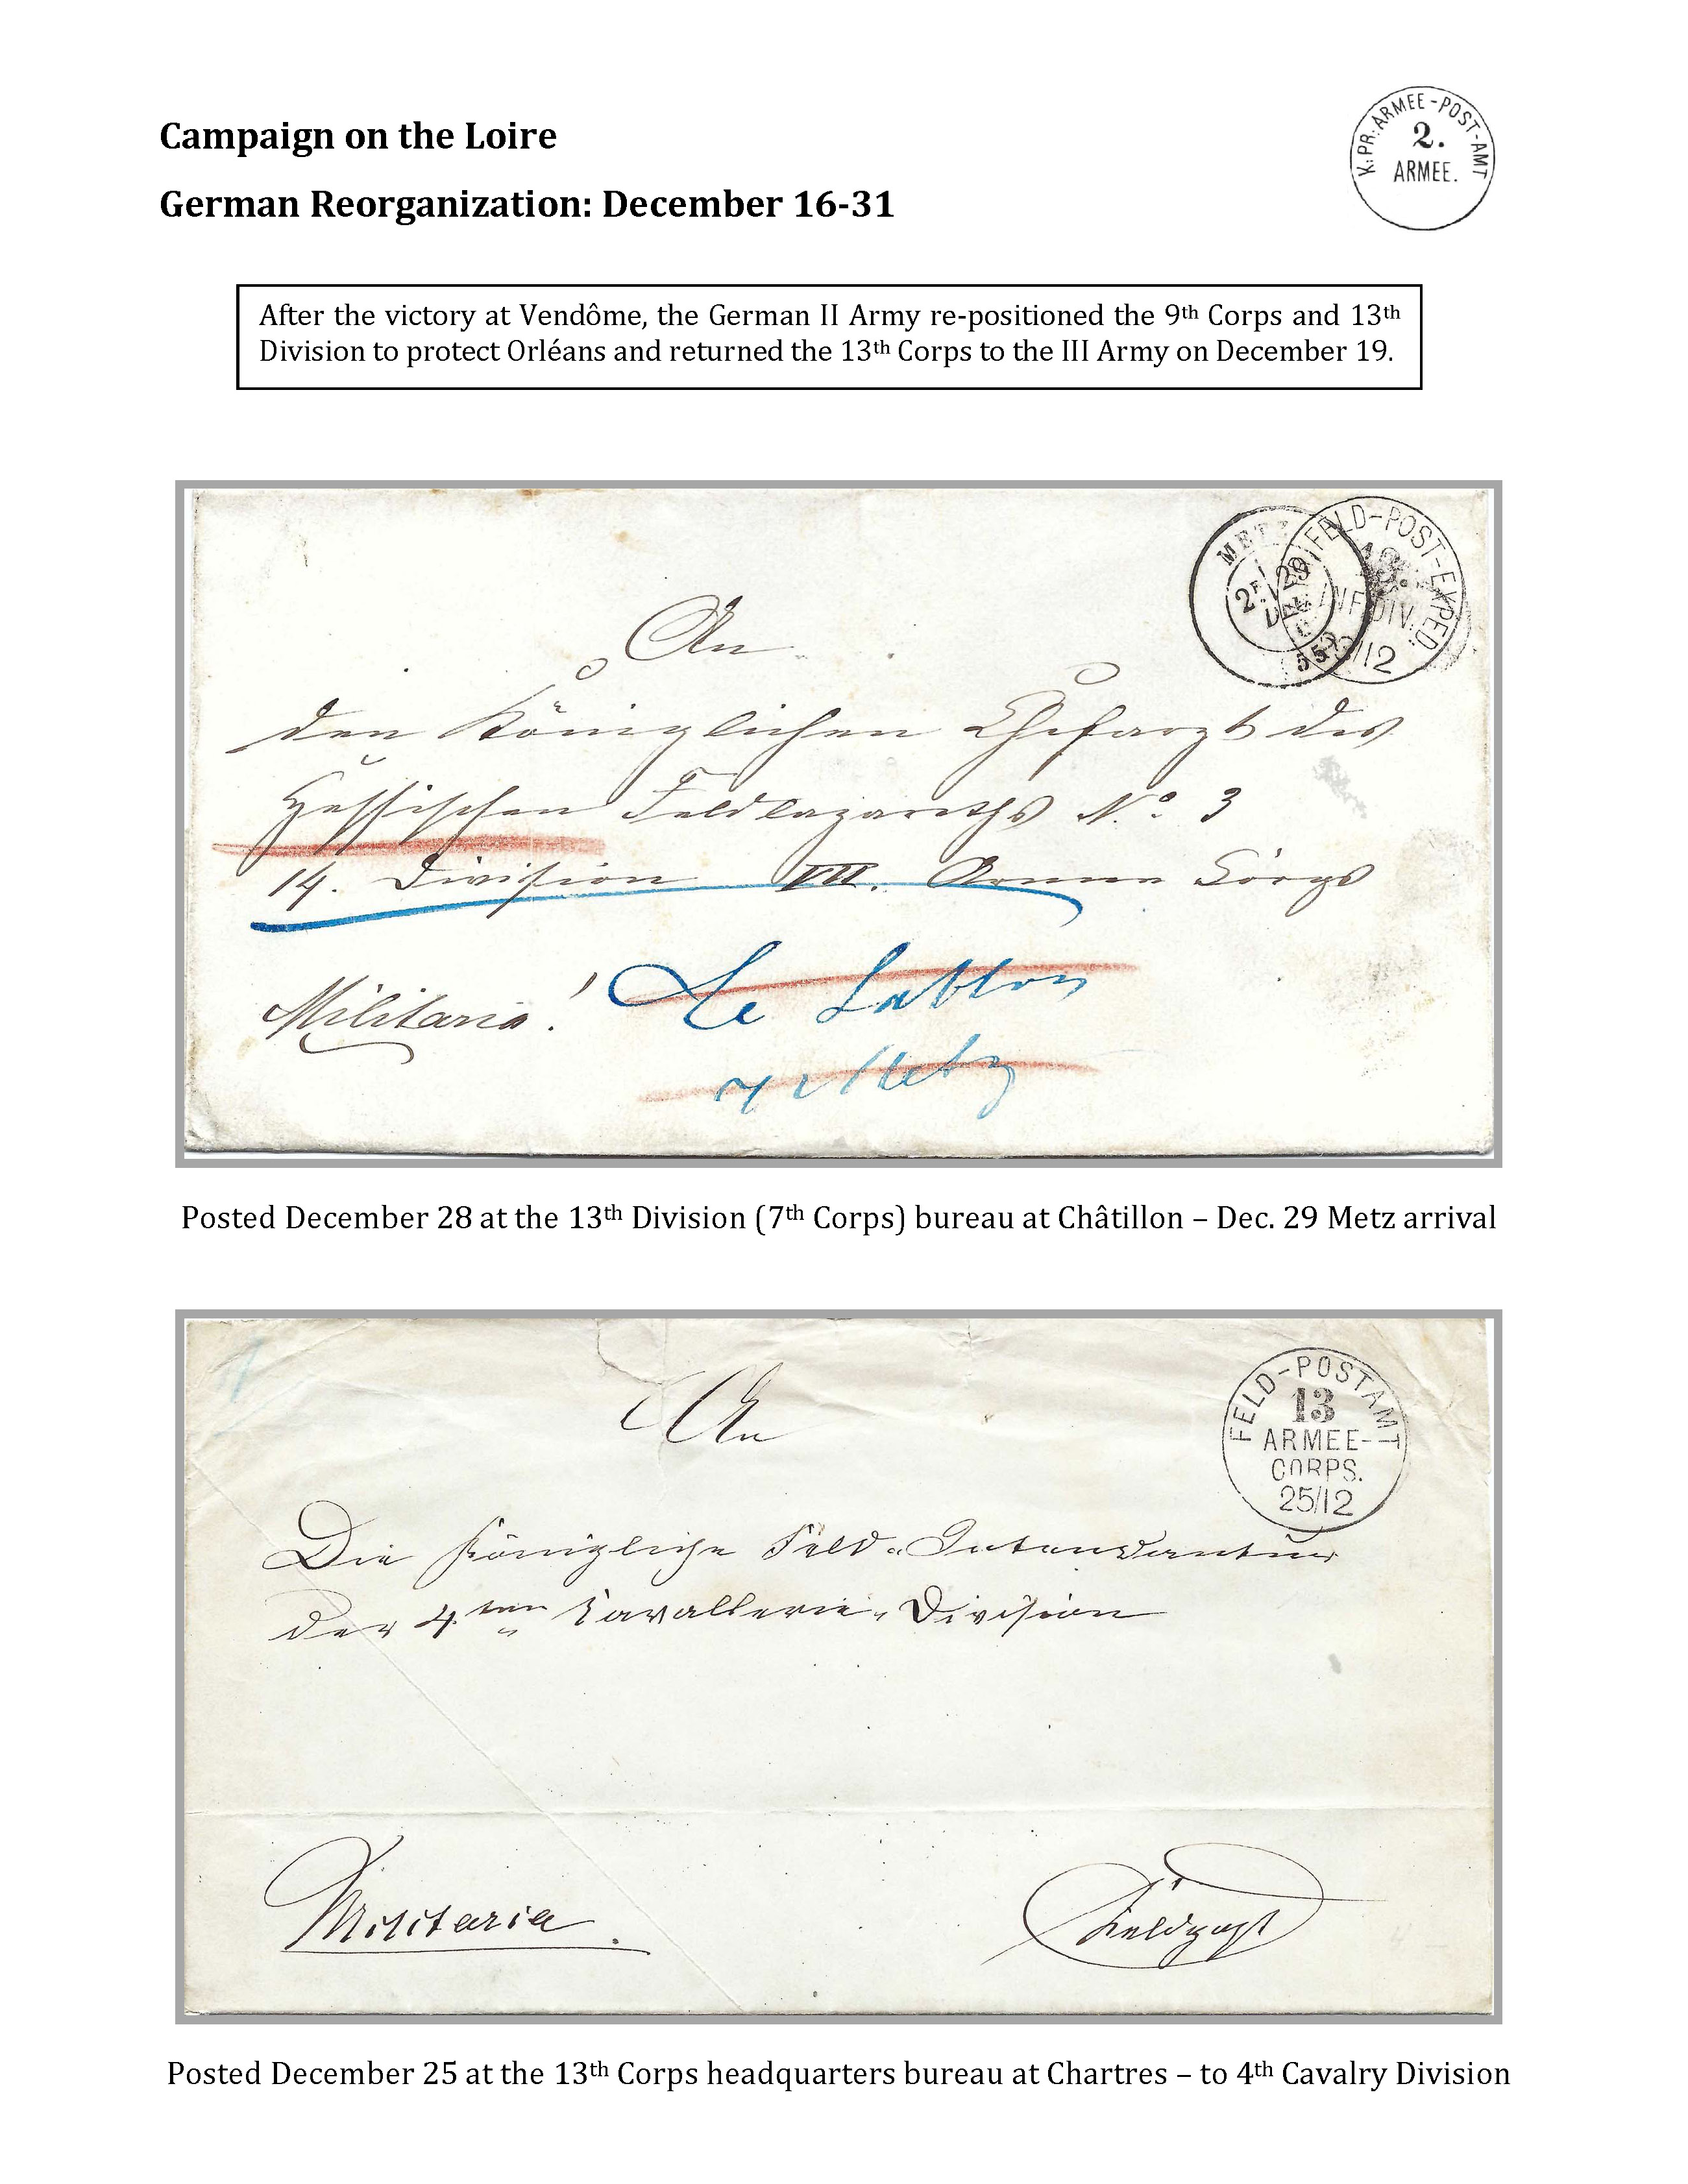 Campaign on the Loire
German Reorganization: December 16-31
K. PR. ARMEE-POST-AMT
2.
ARMEE.
After the victory at Vendôme, the German II Army re-positioned the 9th Corps and 13th
Division to protect Orléans and returned the 13th Corps to the III Army on December 19.
METZ
29
FELD-POST-EXPED.
INF. DIV.
/12
An
den Königlichen Chefarzt des
Hessischen Feldlazareths No. 3
14. Division VII. Armee Corps
Militaria!
Le
Metz
Posted December 28 at the 13th Division (7th Corps) bureau at Châtillon – Dec. 29 Metz arrival
FELD-POSTAMT
13
ARMEE-
CORPS.
25/12
An
Die Königliche Feld-Intendantur
der 4ten Cavallerie-Division
Militaria.
Feldpost
Posted December 25 at the 13th Corps headquarters bureau at Chartres – to 4th Cavalry Division